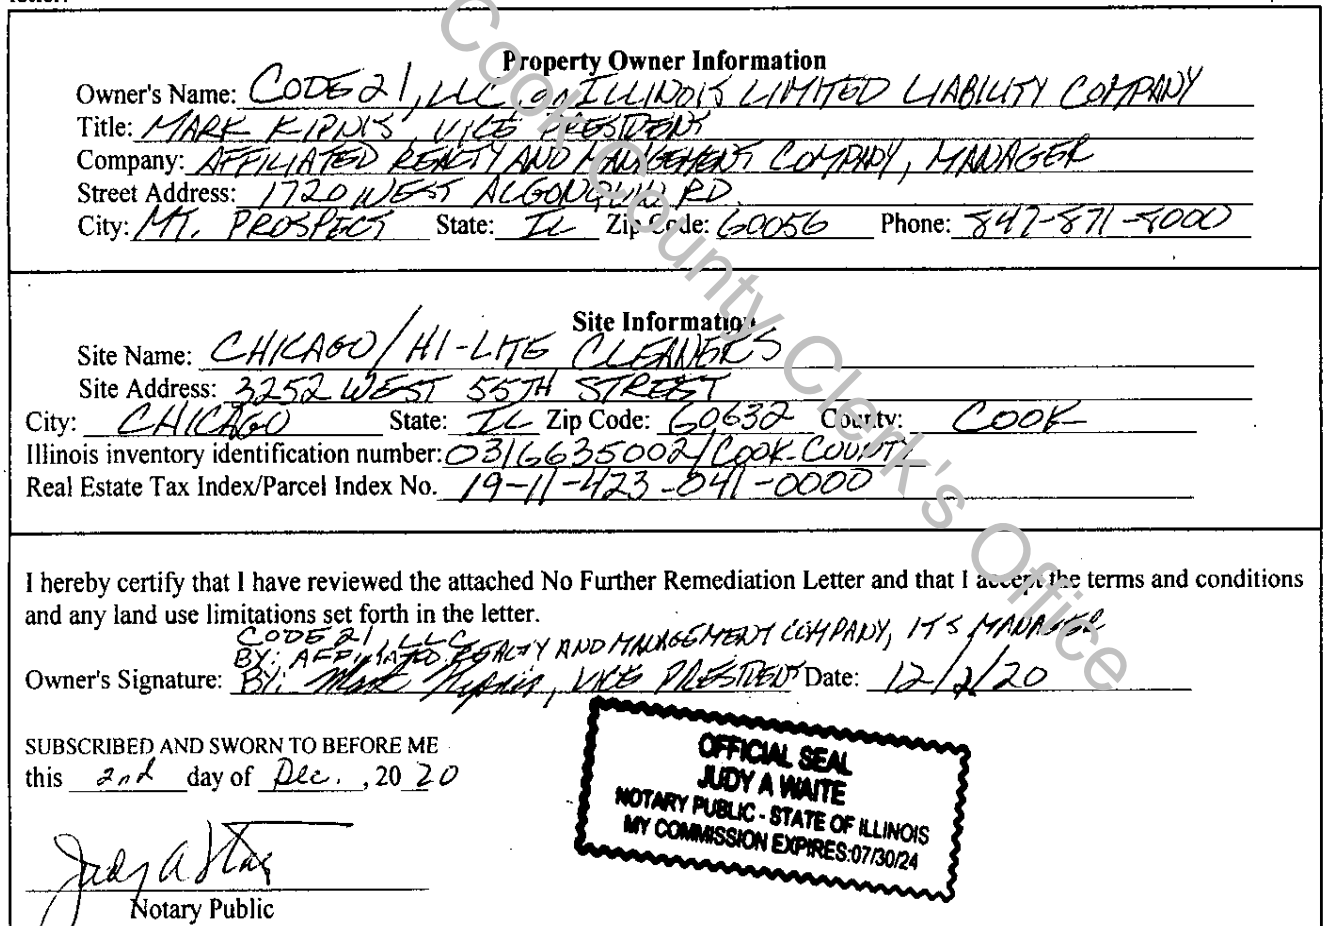 Property Owner Information
Owner's Name: CODE 21, LLC, an ILLINOIS LIMITED LIABILITY COMPANY
Title: MARK KIPNIS, VICE PRESIDENT
Company: AFFILIATED REALTY AND MANAGEMENT COMPANY, MANAGER
Street Address: 1720 WEST ALGONQUIN RD.
City: MT. PROSPECT State: IL Zip Code: 60056 Phone: 847-871-8000
Site Information
Site Name: CHICAGO/HI-LITE CLEANERS
Site Address: 3252 WEST 55TH STREET
City: CHICAGO State: IL Zip Code: 60632 County: COOK
Illinois inventory identification number: 0316635002/COOK COUNTY
Real Estate Tax Index/Parcel Index No. 19-11-423-041-0000
I hereby certify that I have reviewed the attached No Further Remediation Letter and that I accept the terms and conditions
and any land use limitations set forth in the letter.
CODE 21, LLC
BY: AFFILIATED REALTY AND MANAGEMENT COMPANY, ITS MANAGER
Owner's Signature: BY: Mark Kipnis, VICE PRESIDENT Date: 12/2/20
SUBSCRIBED AND SWORN TO BEFORE ME
this 2nd day of Dec., 2020
OFFICIAL SEAL
JUDY A WAITE
NOTARY PUBLIC - STATE OF ILLINOIS
MY COMMISSION EXPIRES:07/30/24
Judy A
Notary Public
Cook County Clerk's Office